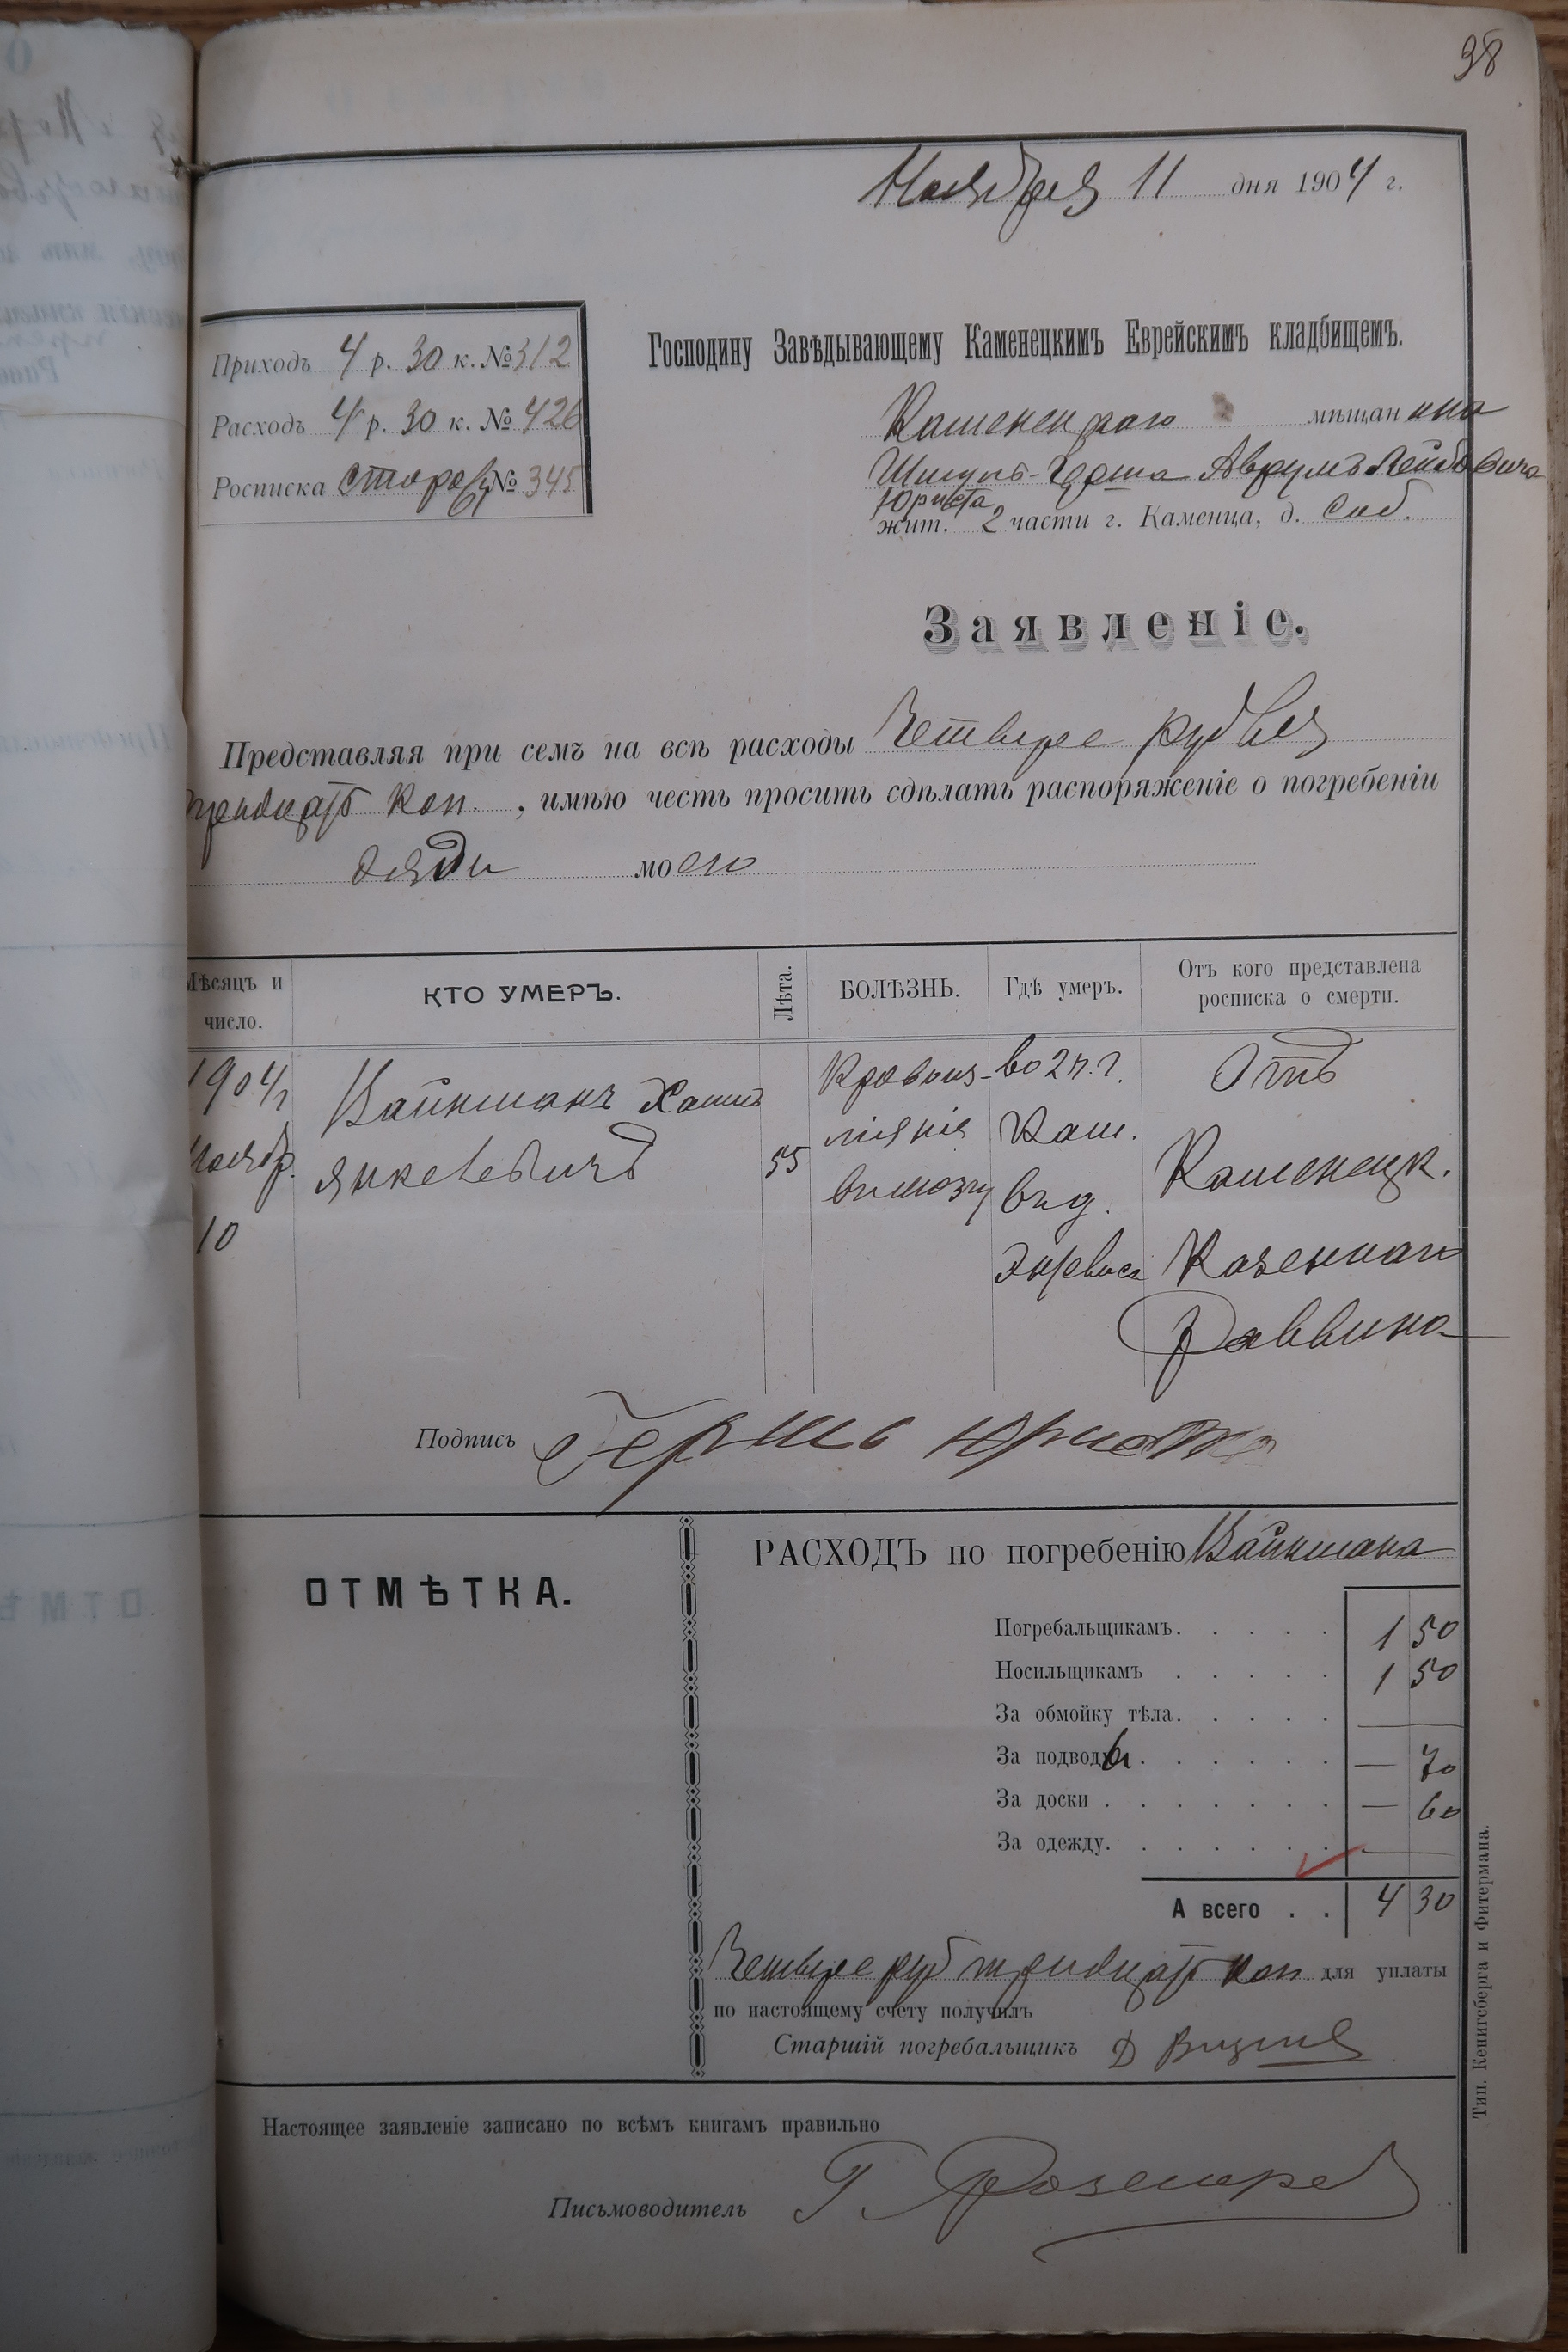 38
Ноября 11 дня 1904 г.
Приходъ 4 р. 30 к. № 312
Расходъ 4 р. 30 к. № 426
Росписка сторож № 345
Господину Завѣдывающему Каменецкимъ Еврейскимъ кладбищемъ.
Каменецкаго мѣщанина
Авrумъ Лейбовича
Юриста
жит. 2 части г. Каменца, д. соб.
Заявленіе.
Представляя при семъ на всѣ расходы Четыре рубля
тридцать коп., имѣю честь просить сдѣлать распоряженіе о погребеніи
дяди моего
Мѣсяцъ и число.
КТО УМЕРЪ.
Лѣта.
БОЛѢЗНЬ.
Гдѣ умеръ.
Отъ кого представлена росписка о смерти.
1904 г
Ноябр.
10
Вайнманъ Хаимъ
Янкелевичъ
55
Кровоиз-
ліянія
въ мозгу
во 2 ч. г.
Кам.
въ д.
Отъ
Каменецк.
Казеннаго
Раввина
Подпись Гершъ Юриста
ОТМѢТКА.
РАСХОДЪ по погребенію Вайнмана
Погребальщикамъ. . . . . 1 50
Носильщикамъ . . . . . 1 50
За обмойку тѣла. . . . . —
За подводы . . . . . . — 70
За доски . . . . . . . — 60
За одежду. . . . . . . —
А всего . . 4 30
Четыре руб тридцать коп. для уплаты
по настоящему счету получилъ
Старшій погребальщикъ Д
Настоящее заявленіе записано по всѣмъ книгамъ правильно
Письмоводитель Г.
Тип. Кенигсберга и Фитермана.